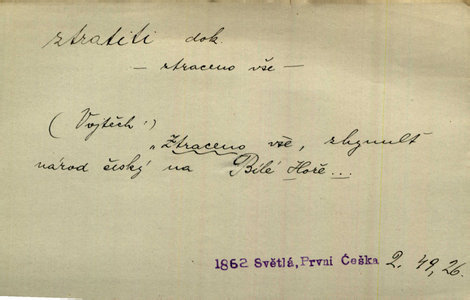 ztratiti dok.
— ztraceno vše —
(Vojtěch:)
„Ztraceno vše, zhynult
národ český na Bílé Hoře...
1862 Světlá, První Češka 2. 49, 26.